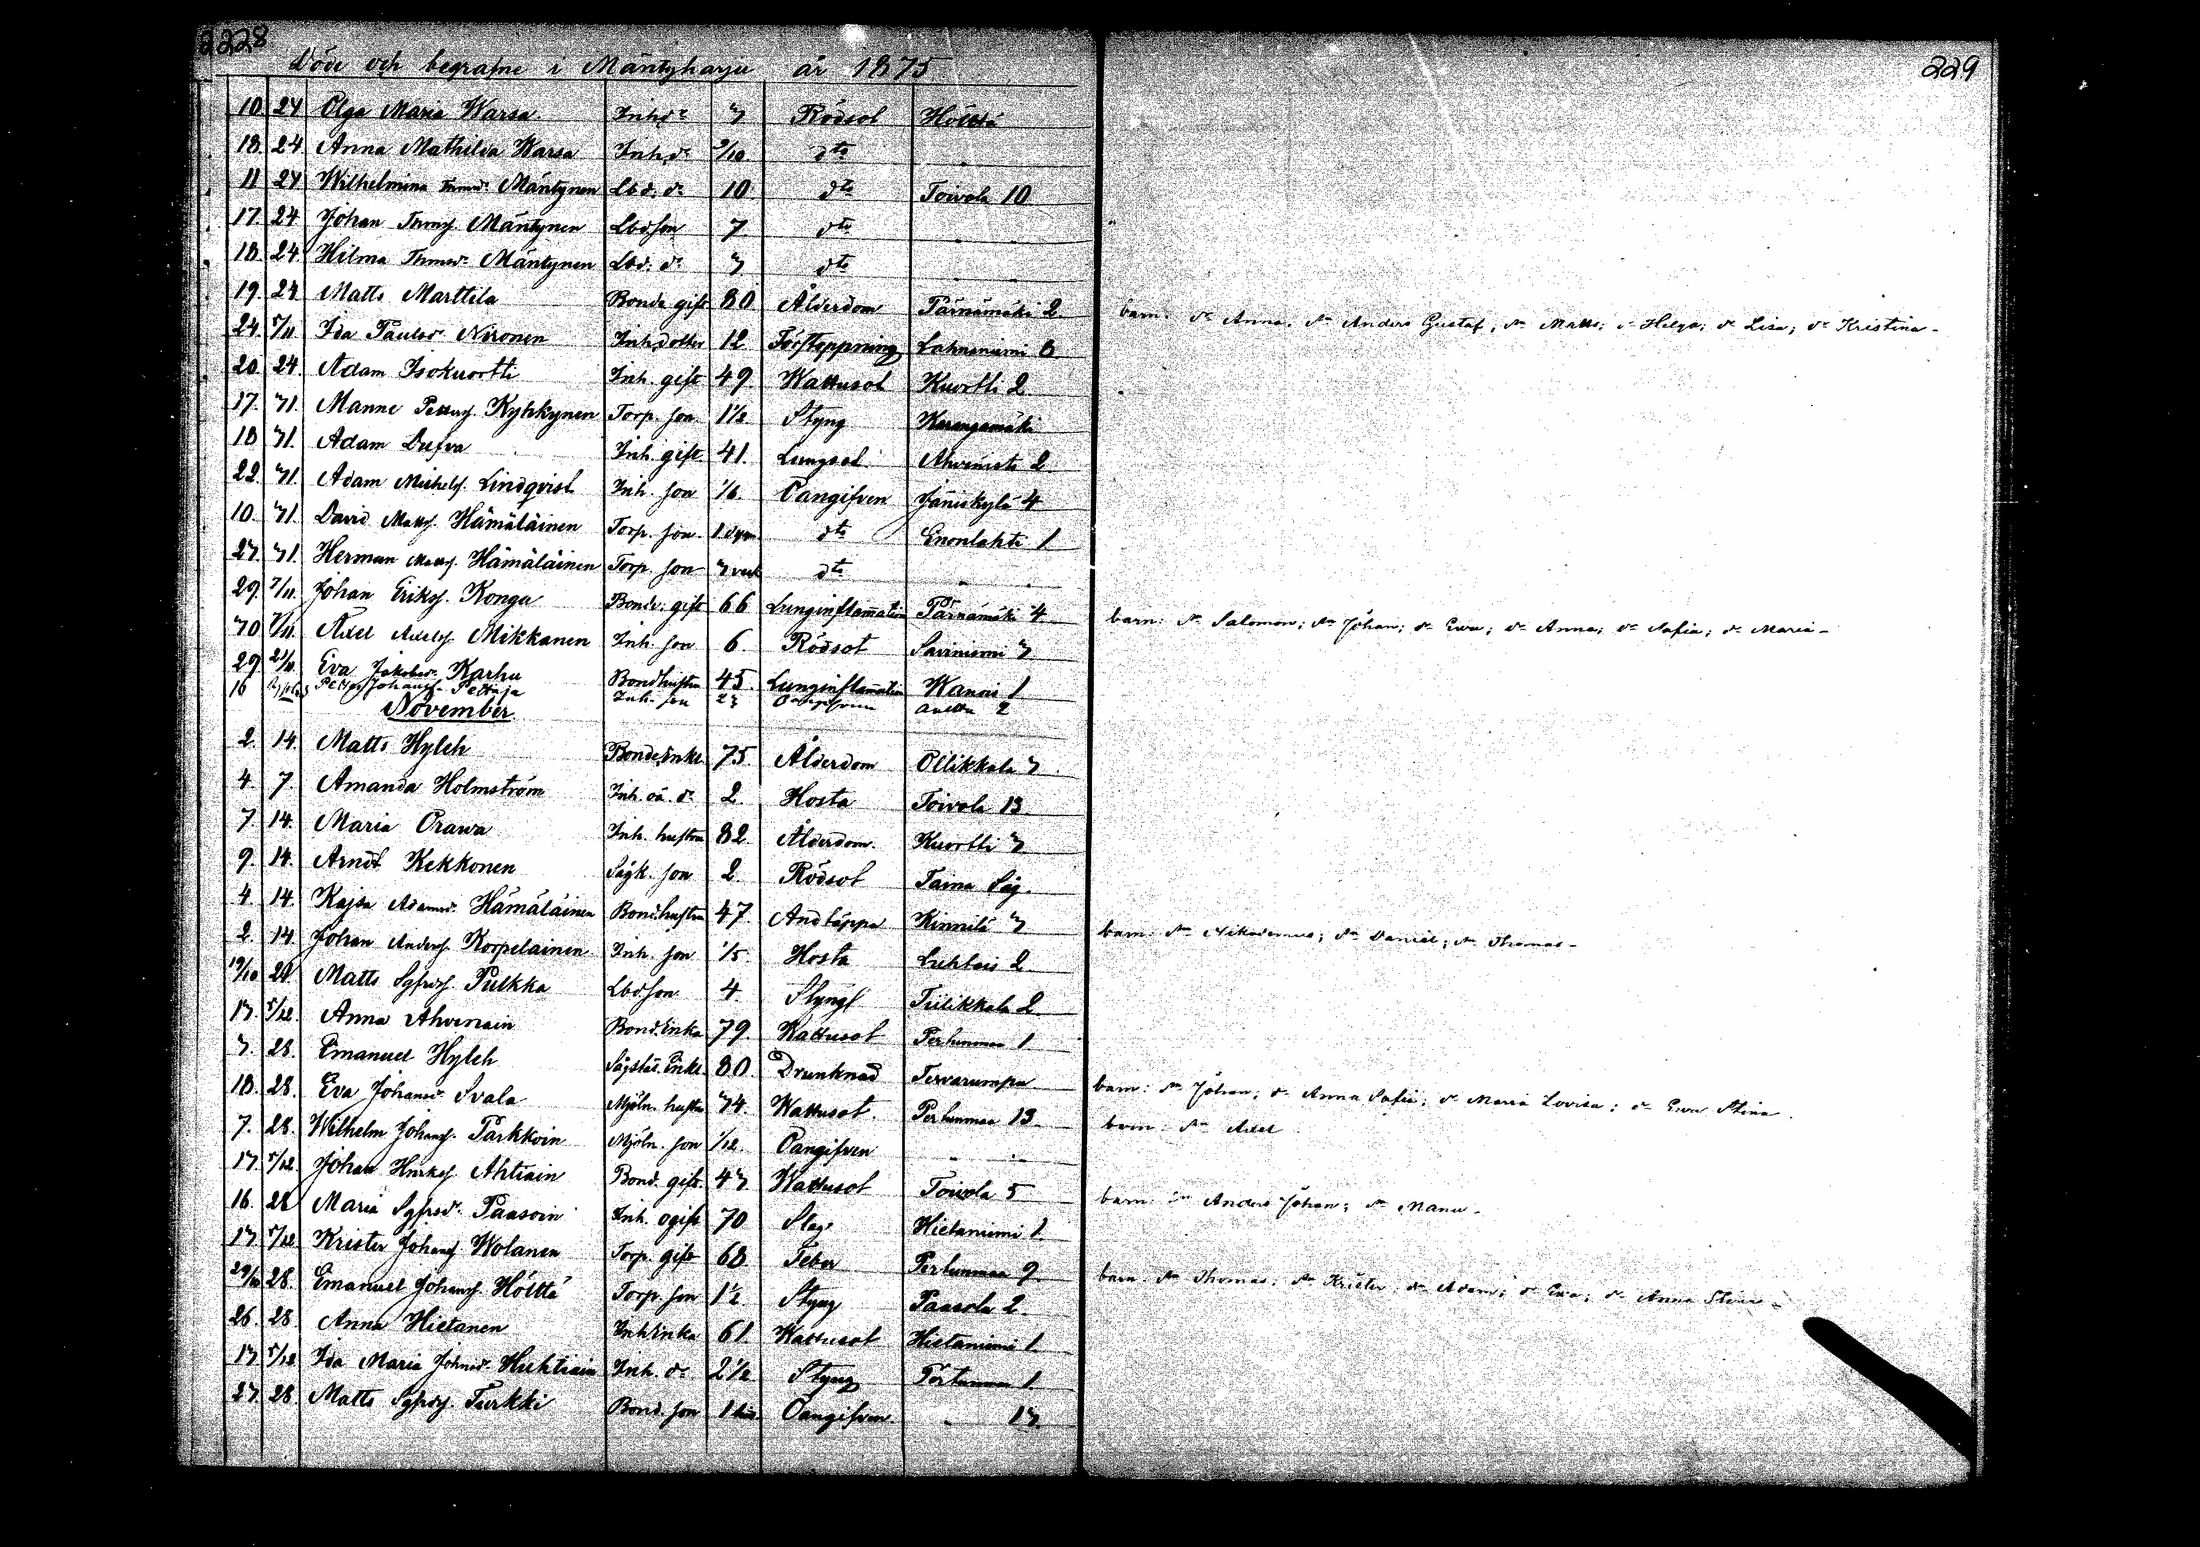 228
229
Döde och begrafne i Mäntyharju år 1875
10. 24 Olga Maria Warsa Inh. dr 3 Rödsot Hölttä
18. 24. Anna Mathilda Warsa Inh. dr 9/10 dto "
11 24 Wilhelmina Thmsdr Mäntynen Lbd. dr 10 dto Toivola 10
17. 24. Johan Thmsf. Mäntynen Lbd. son 7 dto " "
18. 24. Hilma Thmsdr Mäntynen Lbd. dr 3 dto " "
19. 24 Matts Marttila Bonde gift 80 Ålderdom Pärnämäki 2. barn: sn Anders Gustaf; sn Matts; dr Helga; dr Lisa; dr Kristina
24. 5/11 Ida Paulsdr Nironen Inh. dotter 12 Förstoppning Lahnaniemi 8
20. 24. Adam Isokuortti Inh. gift 49 Wattusot Kuortti 2
17. 31. Manne Pettersf. Kyhkynen Torp. son 1 1/2 Styng Karangamäki
18 31. Adam Dufva Inh. gift. 41. Lungsot Ahvenisto 2
22. 31. Adam Michelsf. Lindqvist Inh. son 1/6 Oangifven Jäniskylä 4
10. 31. David Mattsf. Hämäläinen Torp. son 1 dygn dto Enonlahti 1
27. 31. Herman Mattsf. Hämäläinen Torp. son 3 veck dto " "
29. 7/11. Johan Eriksf. Konga Bonde. gift 66 Lunginflamation Pärnämäki 4 barn: sn Salomon; sn Johan; dr Ewa; dr Anna; dr Sofia; dr Maria
30 7/11. Axel Adolfsf. Mikkanen Inh. son 6. Rödsot Savinimi 3
29 21/11. Eva Jakobsdr Karhu Bond hustru 45. Lunginflamation Kanois 1
16 Petter Johansf. Pettäjä Inh. son 23 Oangifven 2
November
2. 14. Matts Hyleh Bonde. Enkl. 75 Ålderdom Ollikkala 3
4. 7. Amanda Holmström Inh. oä. dr 2. Hosta Toivola 13
7. 14. Maria Orawa Inh. hustru 82. Ålderdom. Kuortti 3
9. 14. Arndt Kekkonen Sågk. son 2. Rödsot Taina Såg.
4 14. Kajsa Adamsdr Hämäläinen Bond. hustru 47. Andtäppa Kinnilä 3 barn: sn Nikodemus; sn Daniel; sn Thomas
2. 14. Johan Andersf. Korpelainen Inh. son 1/5. Hosta Luhtais 2
19/10 21 Matts Sgfrdsf. Pulkka Lbd. son. 4 Styng Tiilikkala 2
13. 5/12. Anna Ahvenain Bond. Enka 79. Wattusot Pertunmaa 1
3. 28. Emanuel Hyleh Sågstäs. Enkl. 80. Drunknad Tervarumpu barn: sn Johan; dr Anna Sofia; dr Maria Lovisa; dr Ewa Stina
18. 28. Eva Johansdr Svala Mjöln. hustru 34. Wattusot. Pertunmaa 13 barn: sn Axel
7. 28. Wilhelm Johansf. Parkkoin Mjöln. son 1/12. Oangifven " "
13 5/12. Johan Hnrksf. Ahtiain Bond. gift. 43 Wattusot Toivola 5 barn: sn Anders Johan; sn Manu
16. 28 Maria Sgfrsdr Paasoin Inh. ogift 70 Slag Hietaniemi 1
13 5/12 Krister Johansf. Wolanen Torp. gift 68 Feber Pertunmaa 9 barn. sn Thomas; sn Krister; sn Adam; dr Ewa; dr Anna Stina
29/10 28. Emanuel Johansf. Hölttä Torp. son 1 1/2 Styng Paasola 2.
26. 28. Anna Hietanen Inh. Enka 61. Wattusot Hietaniemi 1
13. 5/12 Ida Maria Johnsdr Huhtiain Inh. dr 2 1/2 Styng Pertunmaa 1
27. 28 Matts Sgfrdsf. Turkki Bond. son Oangifven " 13.